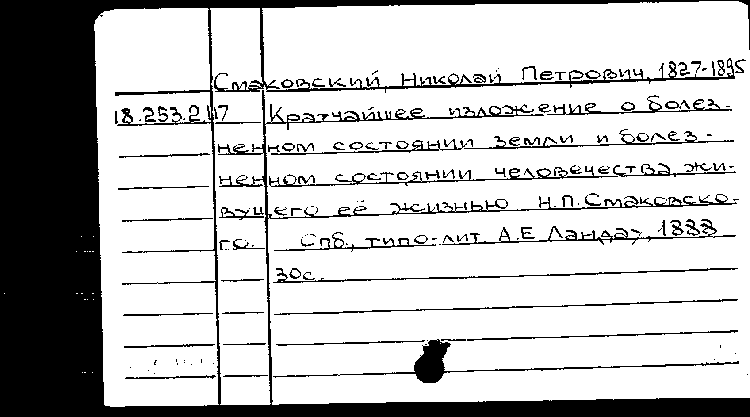 Смаковский, Николай Петрович, 1827-1895
18.253.2.17 Кратчайшее изложение о болез-
ненном состоянии земли и болез-
ненном состоянии человечества, жи-
вущего её жизнью Н.П.Смаковско-
го. Спб., типо-лит. А.Е Ландау, 1888
30с.